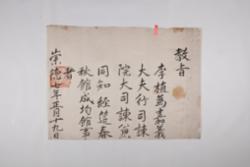 教旨
李植爲嘉義
大夫行司諫
院大司諫兼
同知 經筵春
秋館成均館事
者
崇德七年正月十九日